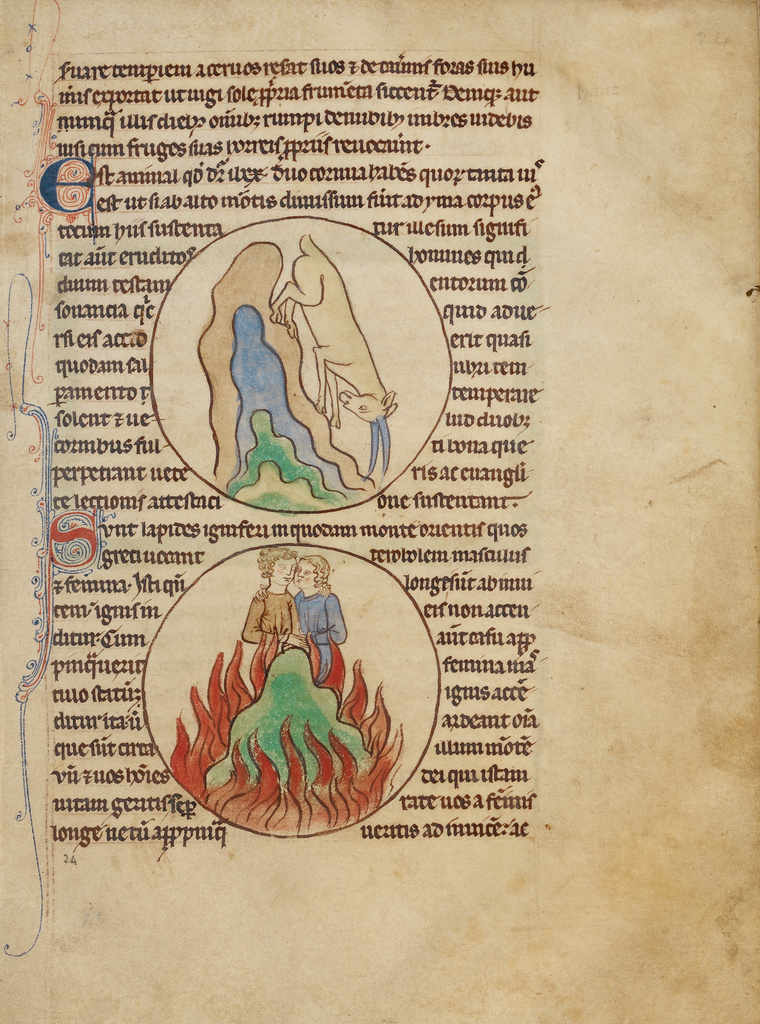 suare temperiem aceruos resat suos ⁊ de cauernis foras suis hu
mis exportat ut iugi sole ppria frumenta siccent Deniq; aut
nunq illis dieb; omib; rumpi de nubib; imbres uidebis
nisi cum fruges suas horreis ppriis reuocauint.
Est animal qd dr ibex. duo cornua habens quor tanta uis
est ut si ab alto montis dimissum fuit ad yma corpus ei
totum hiis sustenta tur illesum signifi
cat aut eruditos homines qui d
duum testam entorum co
sonancia qc quid adue
rsi eis accid erit quasi
quodam sal ubri tem
peramento t temperare
solent ⁊ ue lud duob;
cornibus ful ti bona que
perpetrant uete ris ac euangli
ce lectionis attestaci one sustentant.
Sunt lapides igniferi in quodam monte orientis quos
greci uocant terobolem masculus
⁊ femina. Isti qn longe sunt ab inui
cem ignis in eis non accen
ditur. Cum aut casu app
pinquerit femina mas
culo statim ignis acce
ditur ita ut ardeant oia
que sunt circa illum monte
Vn ⁊ uos hoies dei qui istam
uitam geritis sepe rate uos a feminis
longe ne cu apppinq ueritis ad inuice. ac
24